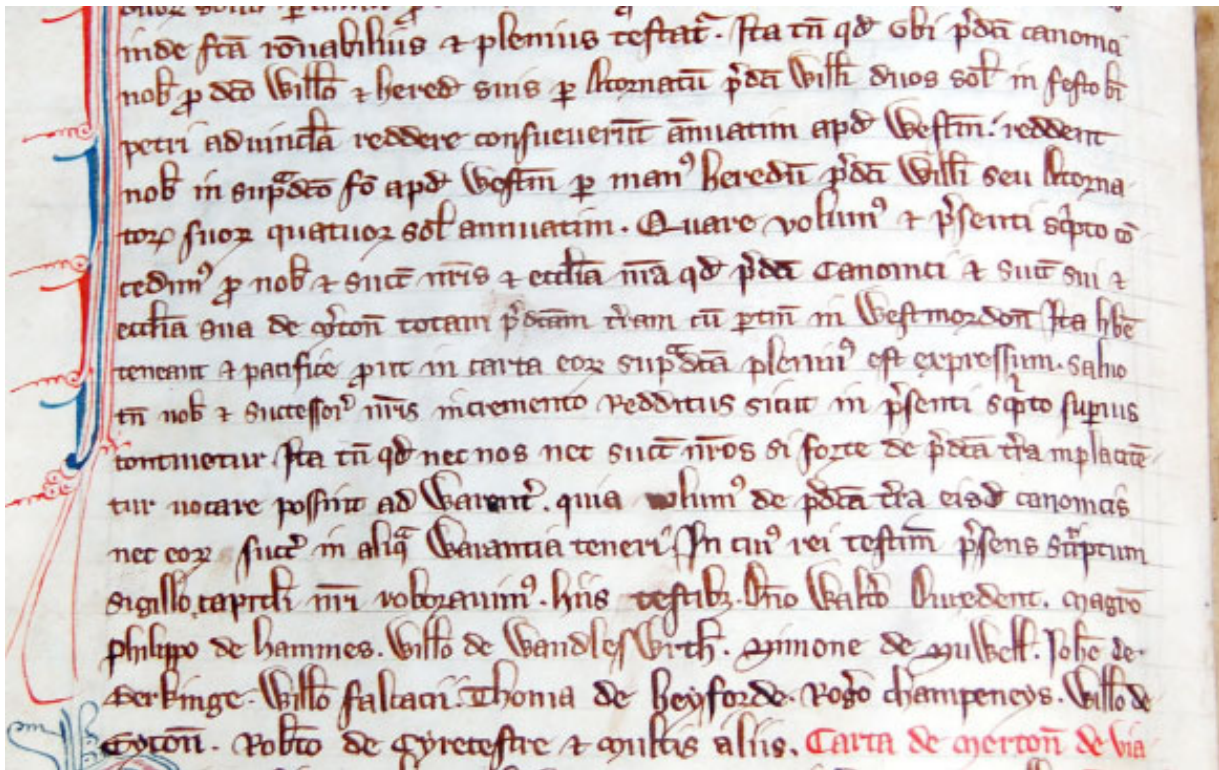 inde fc̄a rōnabilius ⁊ plenius testat᷑. Ita tn̄ qd̄ vbi p̄dc̄i canonici
nob̄ ꝓ dc̄o Will̄o ⁊ hered̄ suis ꝑ Atornatū p̄dc̄i Will̄i duos sol̄ in festo bī
petri aduincl̄a reddere consueuerūt annuatim apd̄ Westm̄. reddent
nob̄ in sup̄dc̄o fō apd̄ Westm̄ ꝑ manꝰ heredū p̄dc̄i Will̄i seu Atorna
toꝝ suoꝝ quatuor sol̄ annuatim. Quare volumꝰ ⁊ p̄senti sc̄pto cō
cedimꝰ ꝓ nob̄ ⁊ succ̄ nr̄is ⁊ eccl̄ia nr̄a qd̄ p̄dc̄i Canonici ⁊ succ̄ sui ⁊
eccl̄ia sua de totam p̄dc̄am tr̄am cū ꝑtin̄ in Westmordon̄ Ita lib̄e
teneant ⁊ pacifice ꝓut in carta eoꝝ sup̄dc̄a pleniꝰ est expressum. saluo
tn̄ nob̄ ⁊ successorꝰ nr̄is incremento Redditus sicut in p̄senti sc̄pto suꝑius
continetur Ita tn̄ qd̄ nec nos nec succ̄ nr̄os si forte de p̄dc̄a tr̄a inplacitē
tur uocare possint ad Warent᷑. quia uolumꝰ de p̄dc̄a tr̄a eisd̄ canonicis
nec eoꝝ succ᷑ in aliq̄ Warantia teneri. In cuiꝰ rei testim̄ p̄sens sc̄ptum
sigillo capitl̄i nr̄i roborauimꝰ. hiis testibꝫ. Dn̄o Walt̄o Duredent. magr̄o
Philippo de hammes. Will̄o de Wandleswrth̄. Simone de Joh̄e de
Berkinge. Will̄o faltacii. Thoma de heyforde. Roḡo champeneys. Will̄o de
Eyton̄. Rob̄to de Cyrecestre ⁊ multis aliis. Carta de merton̄ de via